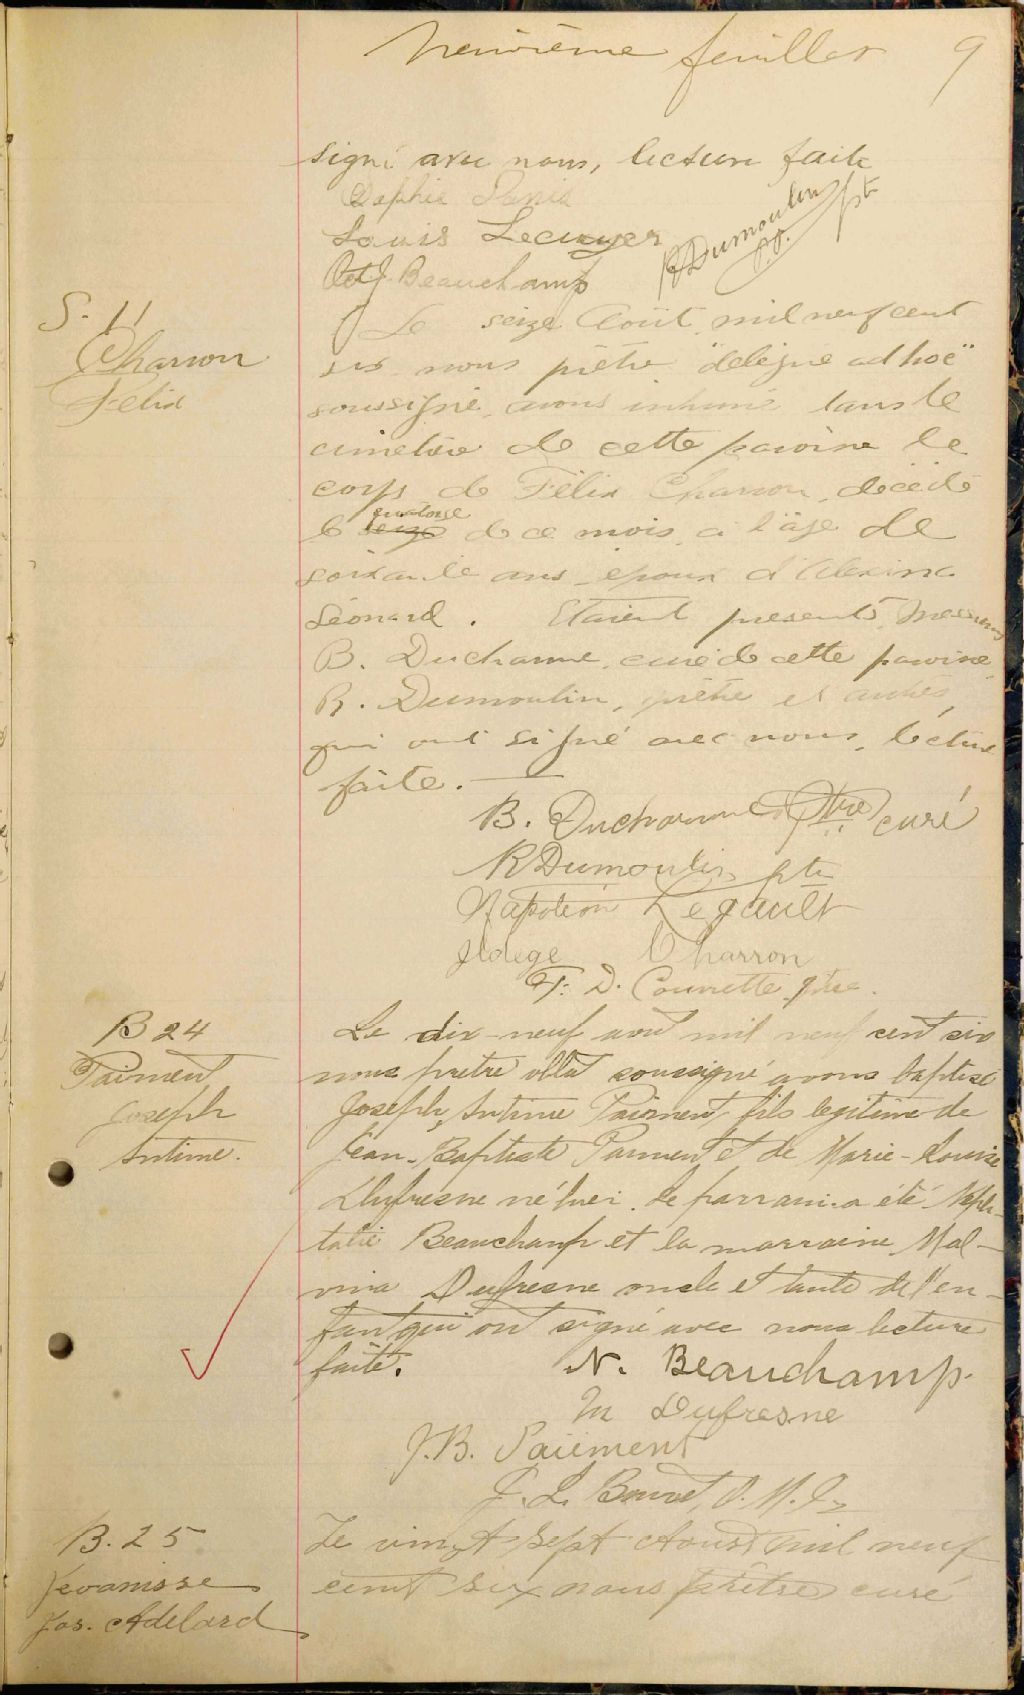 neuvième feuillet 9
signé avec nous, lecture faite
Sophie
Louis Lecuyer
R Dumoulin ptr
Beauchamp
S. 11
Charron
Félix
Le seize Août mil neuf cent
six nous prêtre "délégué ad hoc"
soussigné, avons inhumé dans le
cimetière de cette paroisse le
corps de Félix Charron, décédé
le seize quatorze de ce mois, à l'âge de
soixante ans époux d'Alexina
Léonard. Etaient présents, Messieurs
B. Ducharme, curé de cette paroisse
R. Dumoulin, prêtre et autres,
qui ont signé avec nous, lecture
faite.
B. Ducharme Ptre curé
R Dumoulin ptr
Napoléon Legault
Ildege Charron
F. D. Courrette ptre.
B 24
Paiment
Joseph
Intime.
Le dix-neuf aout mil neuf cent six
nous pretre soussigné avons baptisé
Joseph, Intime Paiment fils legitime de
Jean-Baptiste Paiment et de Marie-Louise
Dufresne né hier. Le parrain a été Neph-
talie Beauchamp et la marraine Mal-
vina Dufresne oncle et tante de l'en-
fant qui ont signé avec nous lecture
faite.
N. Beauchamp.
M Dufresne
J.B. Paiement
J. L. O.M.I.
B. 25
Jevanisse
Jos. Adelard
Le vingt sept Aoust mil neuf
cent six nous prêtre curé